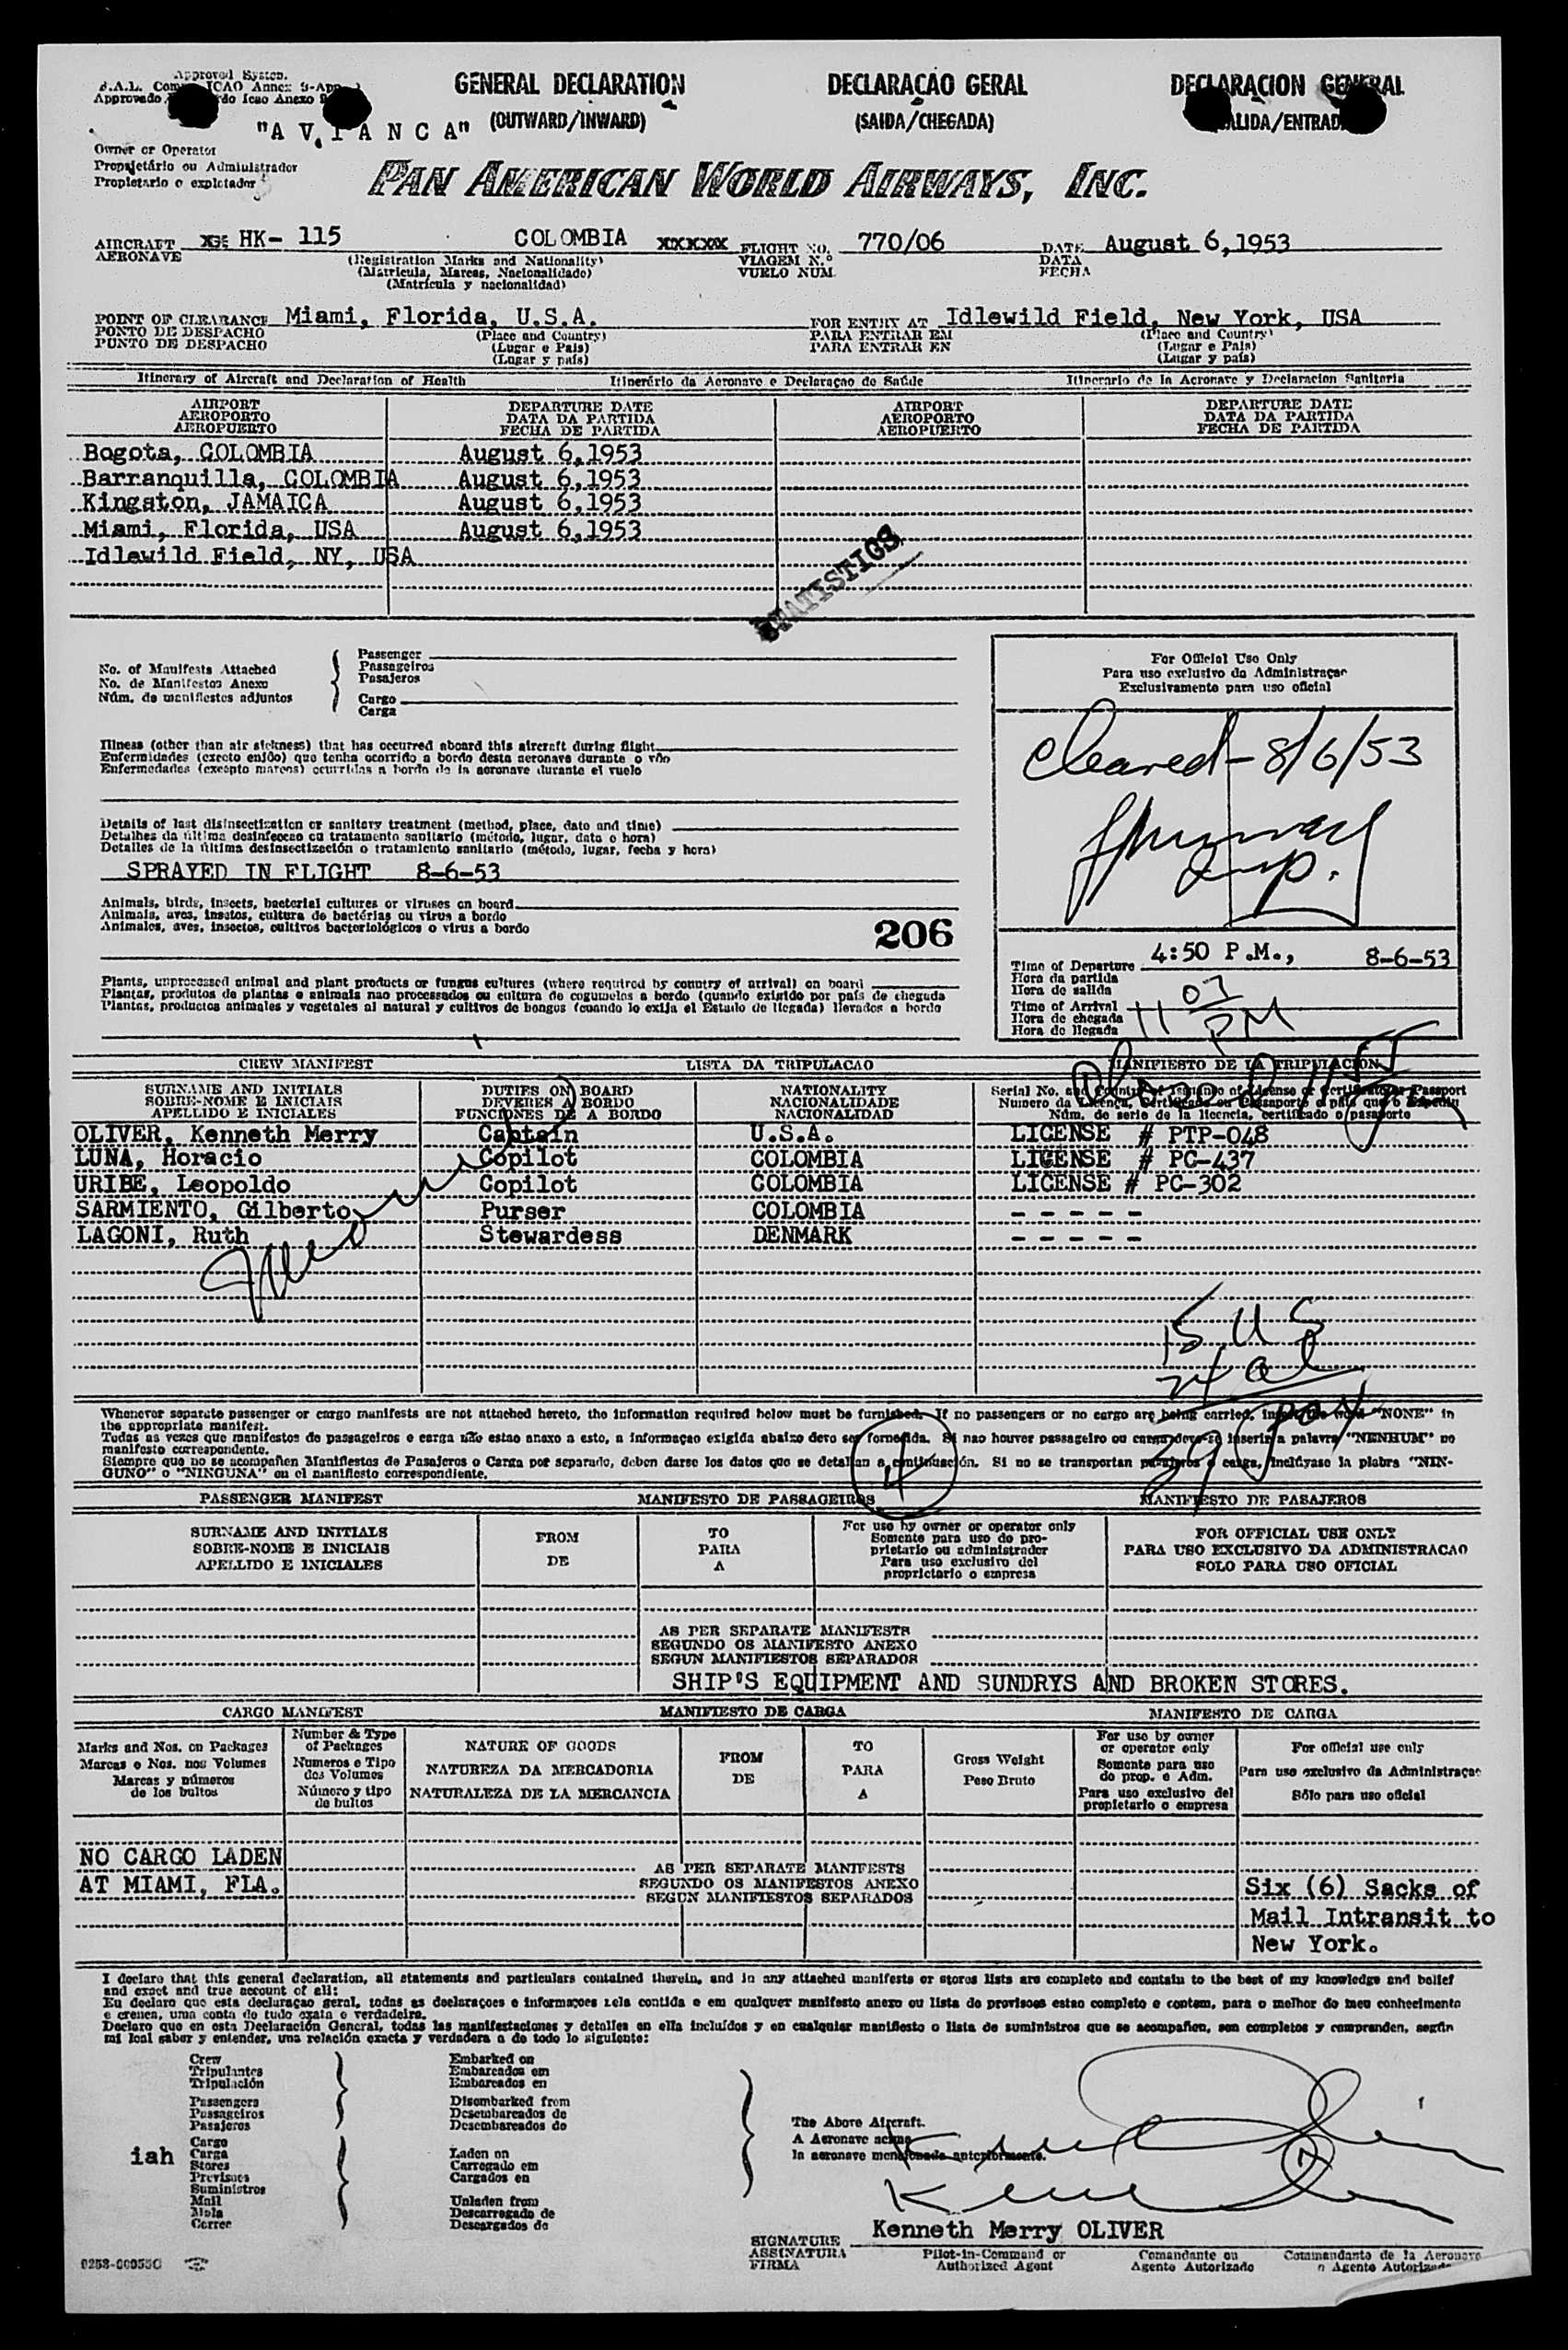 Approved System.
GENERAL DECLARATION
DECLARAÇAO GERAL
DECLARACION GENERAL
Approvado
"AVIANCA"
(OUTWARD/INWARD)
(SAIDA/CHEGADA)
Owner or Operator
Propsietário ou Administrador
Propietario o explotador
PAN AMERICAN WORLD AIRWAYS, INC.
AIRCRAFT HK- 115 COLOMBIA XXXXX FLIGHT NO. 770/06 DATE August 6,1953
AERONAVE
(Registration Marks and Nationality)
VIAGEM N.º
DATA
(Matricula, Marcas, Nacionalidade)
VUELO NUM.
FECHA
(Matrícula y nacionalidad)
POINT OF CLEARANCE Miami, Florida, U.S.A. FOR ENTRY AT Idlewild Field, New York, USA
PONTO DE DESPACHO
(Place and Country)
PARA ENTRAR EM
(Place and Country)
PUNTO DE DESPACHO
(Lugar e Pais)
PARA ENTRAR EN
(Lugar e Pais)
(Lugar y país)
(Lugar y país)
Itinerary of Aircraft and Declaration of Health
Itinerário da Aeronave e Declaraçao de Saúde
Itinerario de la Aeronave y Declaracion Sanitaria
AIRPORT DEPARTURE DATE AIRPORT DEPARTURE DATE
AEROPORTO DATA DA PARTIDA AEROPORTO DATA DA PARTIDA
AEROPUERTO FECHA DE PARTIDA AEROPUERTO FECHA DE PARTIDA
Bogota, COLOMBIA August 6,1953
Barranquilla, COLOMBIA August 6,1953
Kingston, JAMAICA August 6,1953
Miami, Florida, USA August 6,1953
Idlewild Field, NY, USA
STATISTICS
No. of Manifests Attached
No. de Manifestos Anexo
Núm. de manifiestos adjuntos
Passenger
Passageiros
Pasajeros
Cargo
Carga
For Official Use Only
Para uso exclusivo da Administraçao
Exclusivamente para uso oficial
Cleared - 8/6/53
Insp.
Illness (other than air sickness) that has occurred aboard this aircraft during flight
Enfermidades (exceto enjôo) que tenha ocorrido a bordo desta aeronave durante o vôo
Enfermedades (excepto mareos) ocurridas a bordo de la aeronave durante el vuelo
Details of last disinsectization or sanitary treatment (method, place, date and time)
Detalhes da última desinfeccao ou tratamento sanitario (método, lugar, data o hora)
Detalles de la última desinsectización o tratamiento sanitario (método, lugar, fecha y hora)
SPRAYED IN FLIGHT 8-6-53
Animals, birds, insects, bacterial cultures or viruses on board
Animais, aves, insetos, cultura de bactérias ou virus a bordo
Animales, aves, insectos, cultivos bacteriológicos o virus a bordo
206
Plants, unprocessed animal and plant products or fungus cultures (where required by country of arrival) on board
Plantas, produtos de plantas e animais nao processados ou cultura de cogumelos a bordo (quando exigido por país de chegada
Plantas, productos animales y vegetales al natural y cultivos de hongos (cuando lo exija el Estado de llegada) llevados a bordo
Time of Departure 4:50 P.M., 8-6-53
Hora da partida
Hora de salida
Time of Arrival 11 07 PM
Hora de chegada
Hora de llegada
CREW MANIFEST LISTA DA TRIPULACAO MANIFIESTO DE LA TRIPULACION
SURNAME AND INITIALS DUTIES ON BOARD NATIONALITY
SOBRE-NOME E INICIAIS DEVERES A BORDO NACIONALIDADE
APELLIDO E INICIALES FUNCIONES DE A BORDO NACIONALIDAD
Núm. de serie de la licencia, certificado o pasaporte
OLIVER, Kenneth Merry Captain U.S.A. LICENSE # PTP-048
LUNA, Horacio Copilot COLOMBIA LICENSE # PC-437
URIBE, Leopoldo Copilot COLOMBIA LICENSE # PC-302
SARMIENTO, Gilberto Purser COLOMBIA - - - - -
LAGONI, Ruth Stewardess DENMARK - - - - -
15 US
24 al
39 pax
4
Whenever separate passenger or cargo manifests are not attached hereto, the information required below must be furnished. If no passengers or no cargo are being carried, "NONE" in
the appropriate manifest.
Todas as vezes que manifestos de passageiros e carga não estao anexo a esto, a informaçao exigida abaixo deve ser fornecida. Si nao houver passageiro ou carga deve-se inserir a palavra "NENHUM" no
manifesto correspondente.
Siempre que no se acompañen Manifiestos de Pasajeros o Carga por separado, deben darse los datos que se detallan a continuación. Si no se transportan pasajeros o carga, inclúyase la plabra "NIN-
GUNO" o "NINGUNA" en el manifiesto correspondiente.
PASSENGER MANIFEST MANIFESTO DE PASSAGEIROS MANIFIESTO DE PASAJEROS
SURNAME AND INITIALS
SOBRE-NOME E INICIAIS
APELLIDO E INICIALES
FROM
DE
TO
PARA
A
For use by owner or operator only
Somente para uso do pro-
prietario ou administrador
Para uso exclusivo del
proprietario o empresa
FOR OFFICIAL USE ONLY
PARA USO EXCLUSIVO DA ADMINISTRACAO
SOLO PARA USO OFICIAL
AS PER SEPARATE MANIFESTS
SEGUNDO OS MANIFESTO ANEXO
SEGUN MANIFIESTOS SEPARADOS
SHIP'S EQUIPMENT AND SUNDRYS AND BROKEN STORES.
CARGO MANIFEST MANIFIESTO DE CARGA MANIFESTO DE CARGA
Marks and Nos. on Packages
Marcas e Nos. nos Volumes
Marcas y números
de los bultos
Number & Type
of Packages
Numeros e Tipo
dos Volumes
Número y tipo
de bultos
NATURE OF GOODS
NATUREZA DA MERCADORIA
NATURALEZA DE LA MERCANCIA
FROM
DE
TO
PARA
A
Gross Weight
Peso Bruto
For use by owner
or operator only
Somente para uso
do prop. e Adm.
Para uso exclusivo del
propietario o empresa
For official use only
Para uso exclusivo da Administraçao
Sólo para uso oficial
NO CARGO LADEN
AT MIAMI, FLA.
AS PER SEPARATE MANIFESTS
SEGUNDO OS MANIFESTOS ANEXO
SEGUN MANIFIESTOS SEPARADOS
Six (6) Sacks of
Mail Intransit to
New York.
I declare that this general declaration, all statements and particulars contained therein, and in any attached manifests or stores lists are complete and contain to the best of my knowledge and belief
and exact and true account of all:
Eu declaro que esta declaraçao geral, todas as declaraçoes e informaçoes nela contida e em qualquer manifesto anexo ou lista de provisoes estao completo e contem, para o melhor do meu conhecimento
e crença, uma conta de tudo exata e verdadeira.
Declaro que en esta Declaración General, todas las manifestaciones y detalles en ella incluídos y en cualquier manifiesto o lista de suministros que se acompañen, son completos y comprenden, según
mi leal saber y entender, una relación exacta y verdadera a de todo lo siguiente:
Crew
Tripulantes
Tripulación
Passengers
Passageiros
Pasajeros
Cargo
Carga
Stores
Previsoes
Suministros
Mail
Mala
Correo
iah
Embarked on
Embarcados em
Embarcados en
Disembarked from
Desembarcados de
Desembarcados de
Laden on
Carregado em
Cargados en
Unladen from
Descarregado de
Descargados de
The Above Aircraft.
A Aeronave acima
la aeronave mencionada anteriormente.
Kenneth Merry OLIVER
SIGNATURE
ASSINATURA
FIRMA
Pilot-in-Command or
Authorized Agent
Comandante ou
Agente Autorizado
Commandante de la Aeronave
o Agente Autorizado